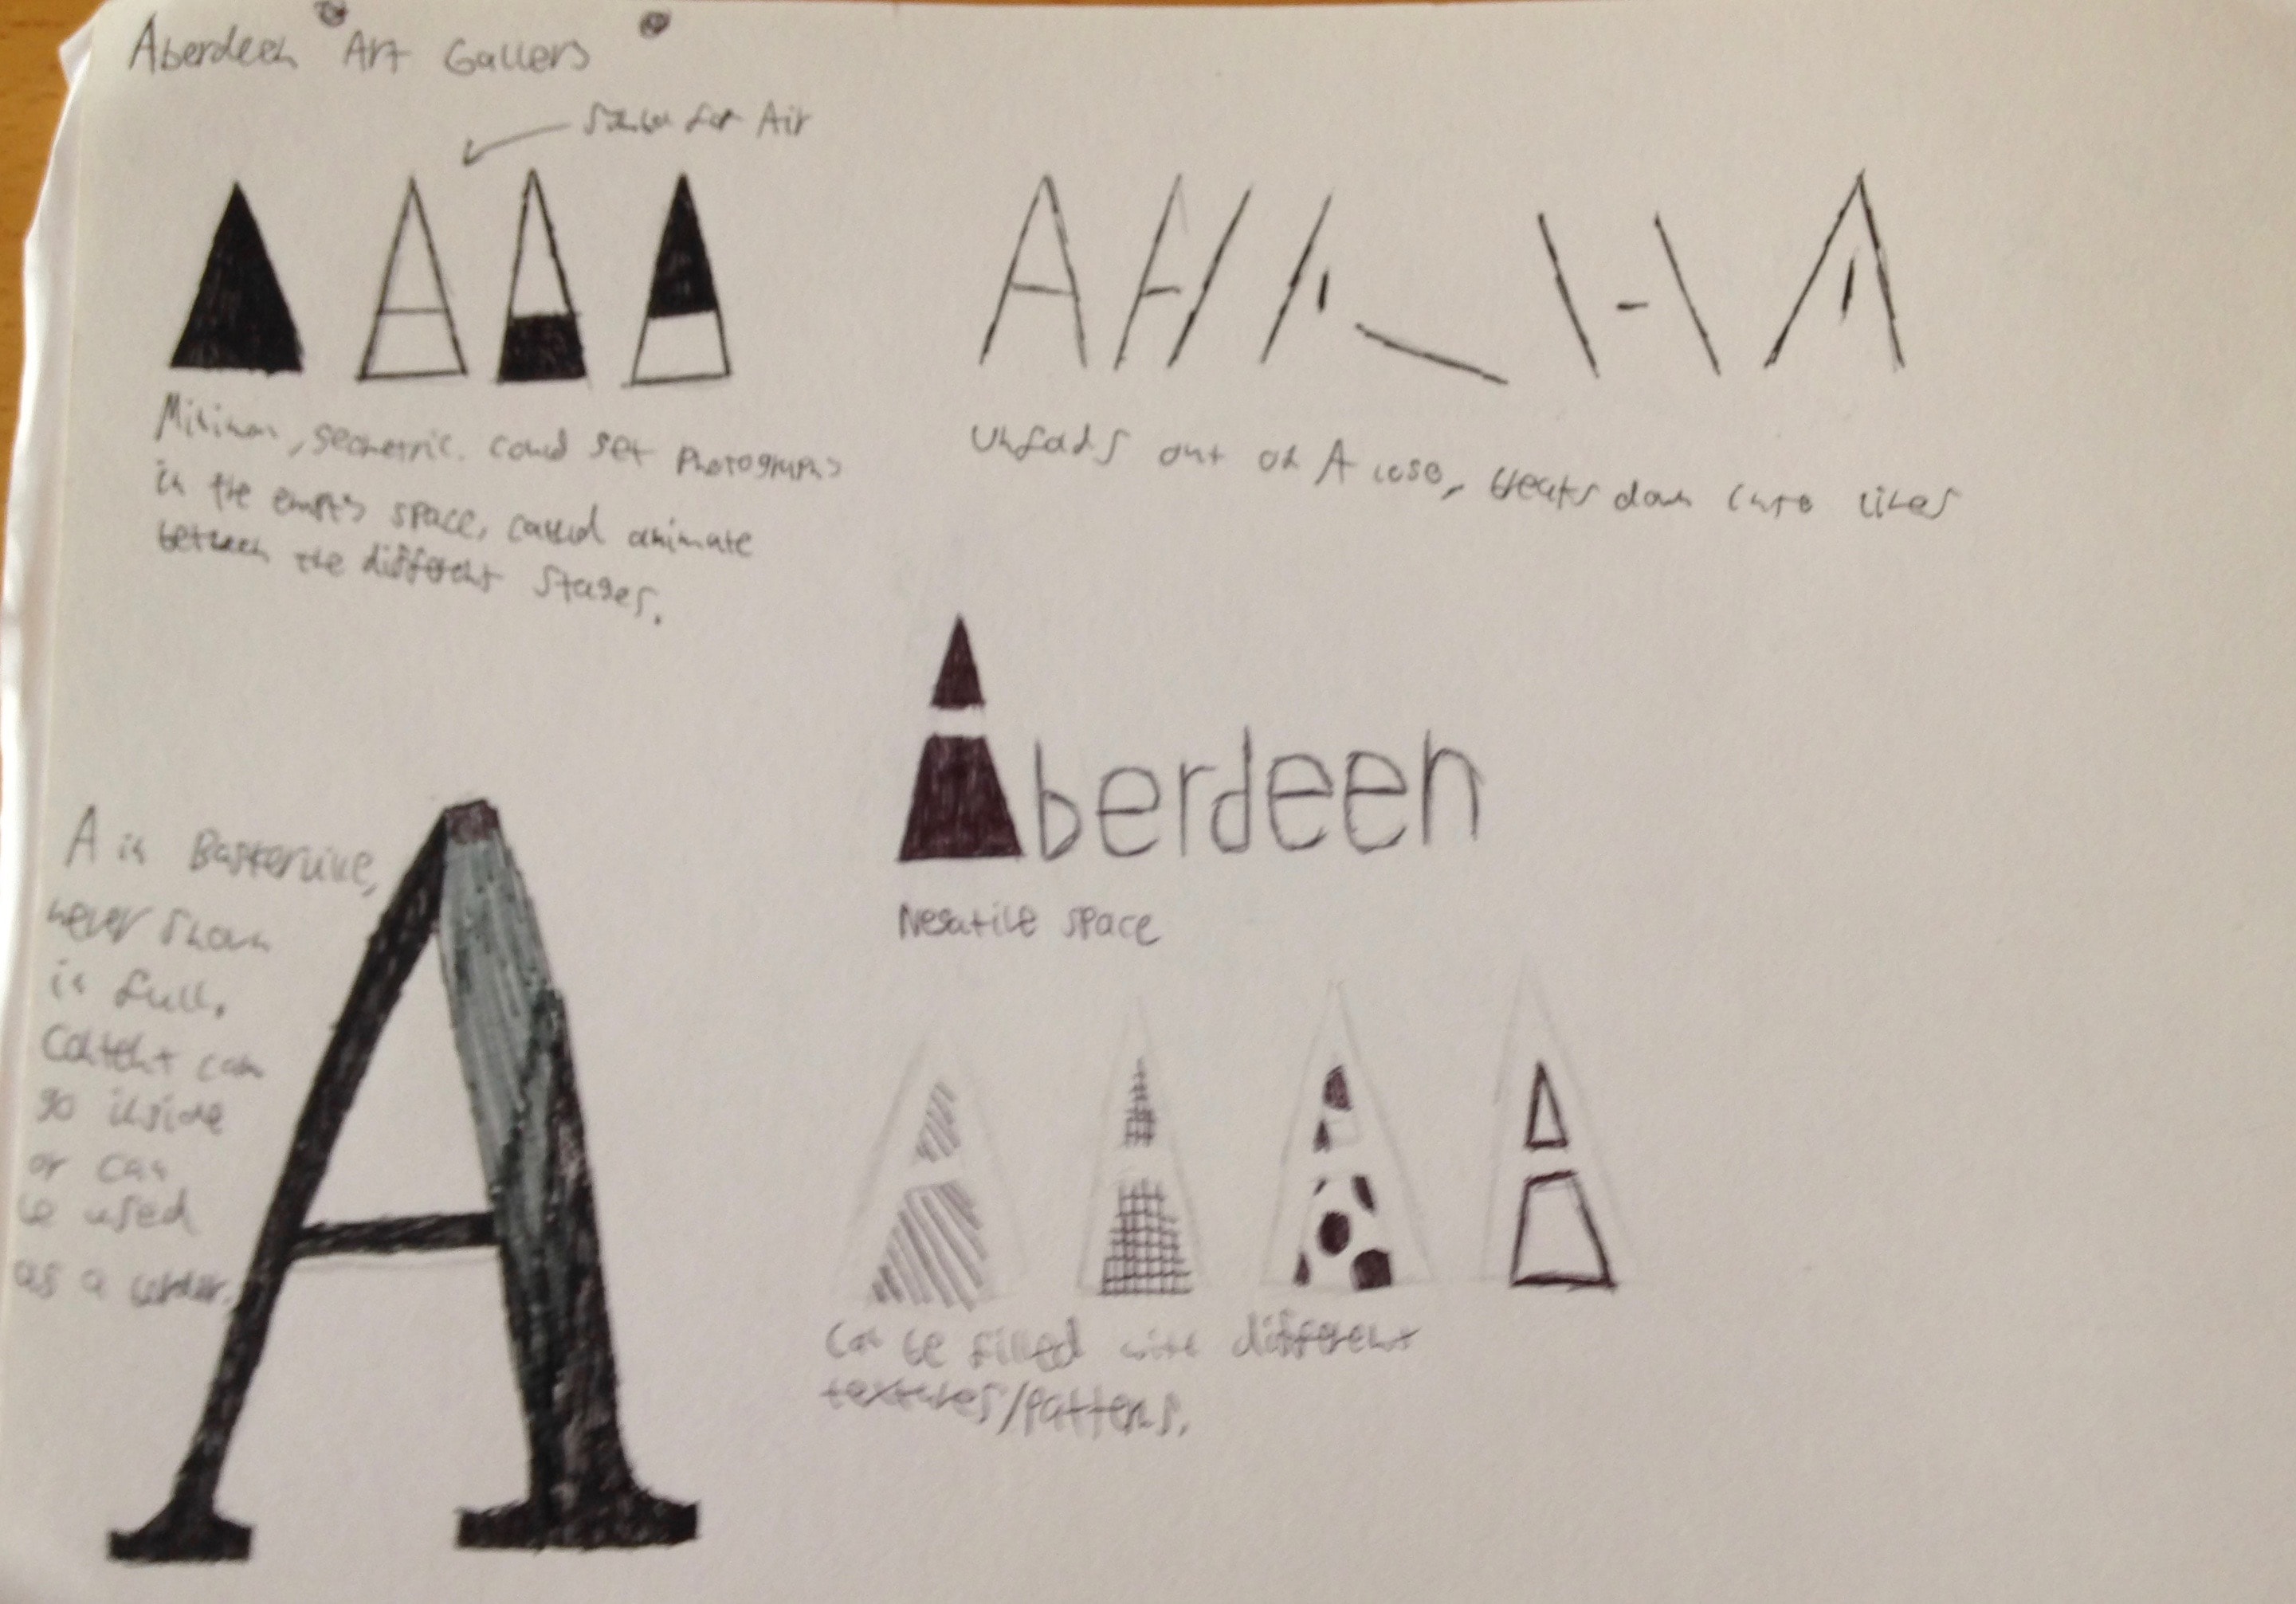 Aberdeen Art Gallery
Symbol for Air
Minimal, geometric. Could set photographs
in the empty space, could animate
between the different stages.
A
Unfolds out of A logo, breaks down into lines
Aberdeen
Negative space
A in Baskerville,
never shown
in full.
Content can
go inside
or can
be used
as a border.
A
Can be filled with different
textures/patterns.